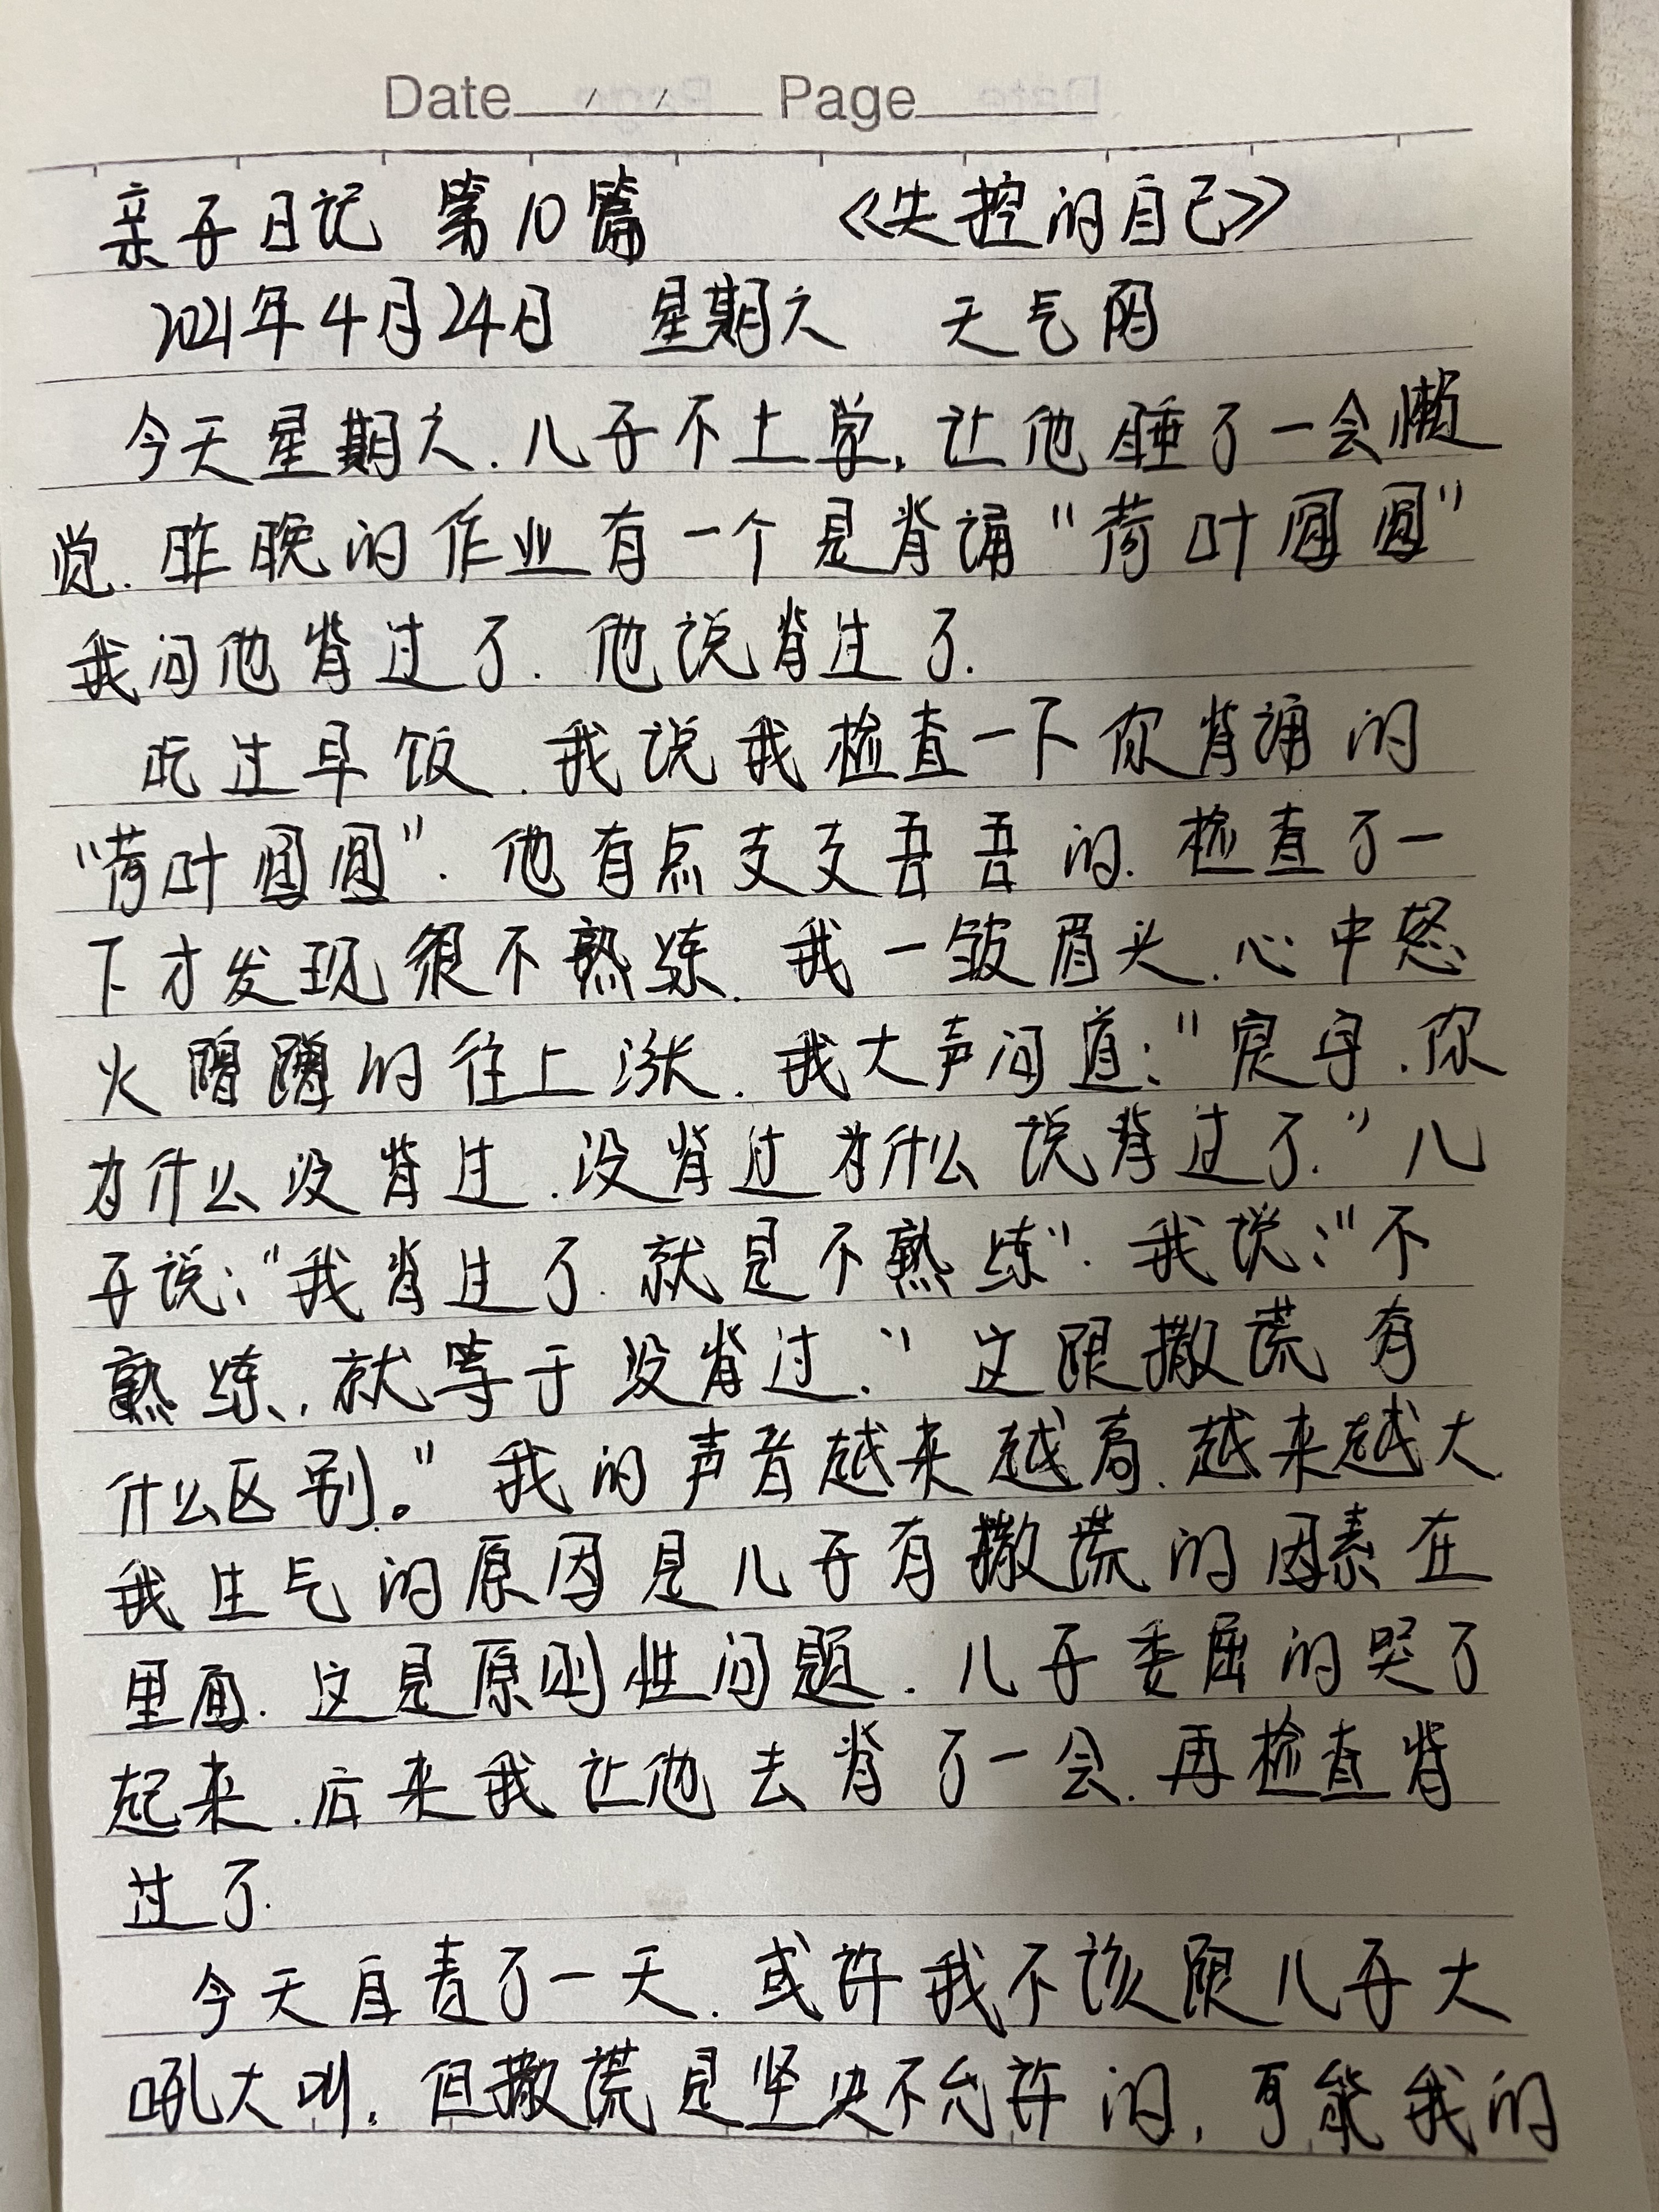 Date / / Page
亲子日记 第10篇 《失控的自己》
2021年4月24日 星期六 天气阴
今天星期六.儿子不上学,让他睡了一会懒
觉.昨晚的作业有一个是背诵“荷叶圆圆”
我问他背过了.他说背过了.
吃过早饭.我说我检查一下你背诵的
“荷叶圆圆”.他有点支支吾吾的.检查了一
下才发现很不熟练.我一皱眉头.心中怒
火蹭蹭的往上涨.我大声问道:“宸宇.你
为什么没背过.没背过为什么说背过了.”儿
子说:“我背过了.就是不熟练”.我说:“不
熟练,就等于没背过.”这跟撒谎有
什么区别。”我的声音越来越高.越来越大.
我生气的原因是儿子有撒谎的因素在
里面.这是原则性问题.儿子委屈的哭了
起来.后来我让他去背了一会.再检查背
过了.
今天自责了一天.或许我不该跟儿子大
吼大叫.但撒谎是坚决不允许的,可能我的